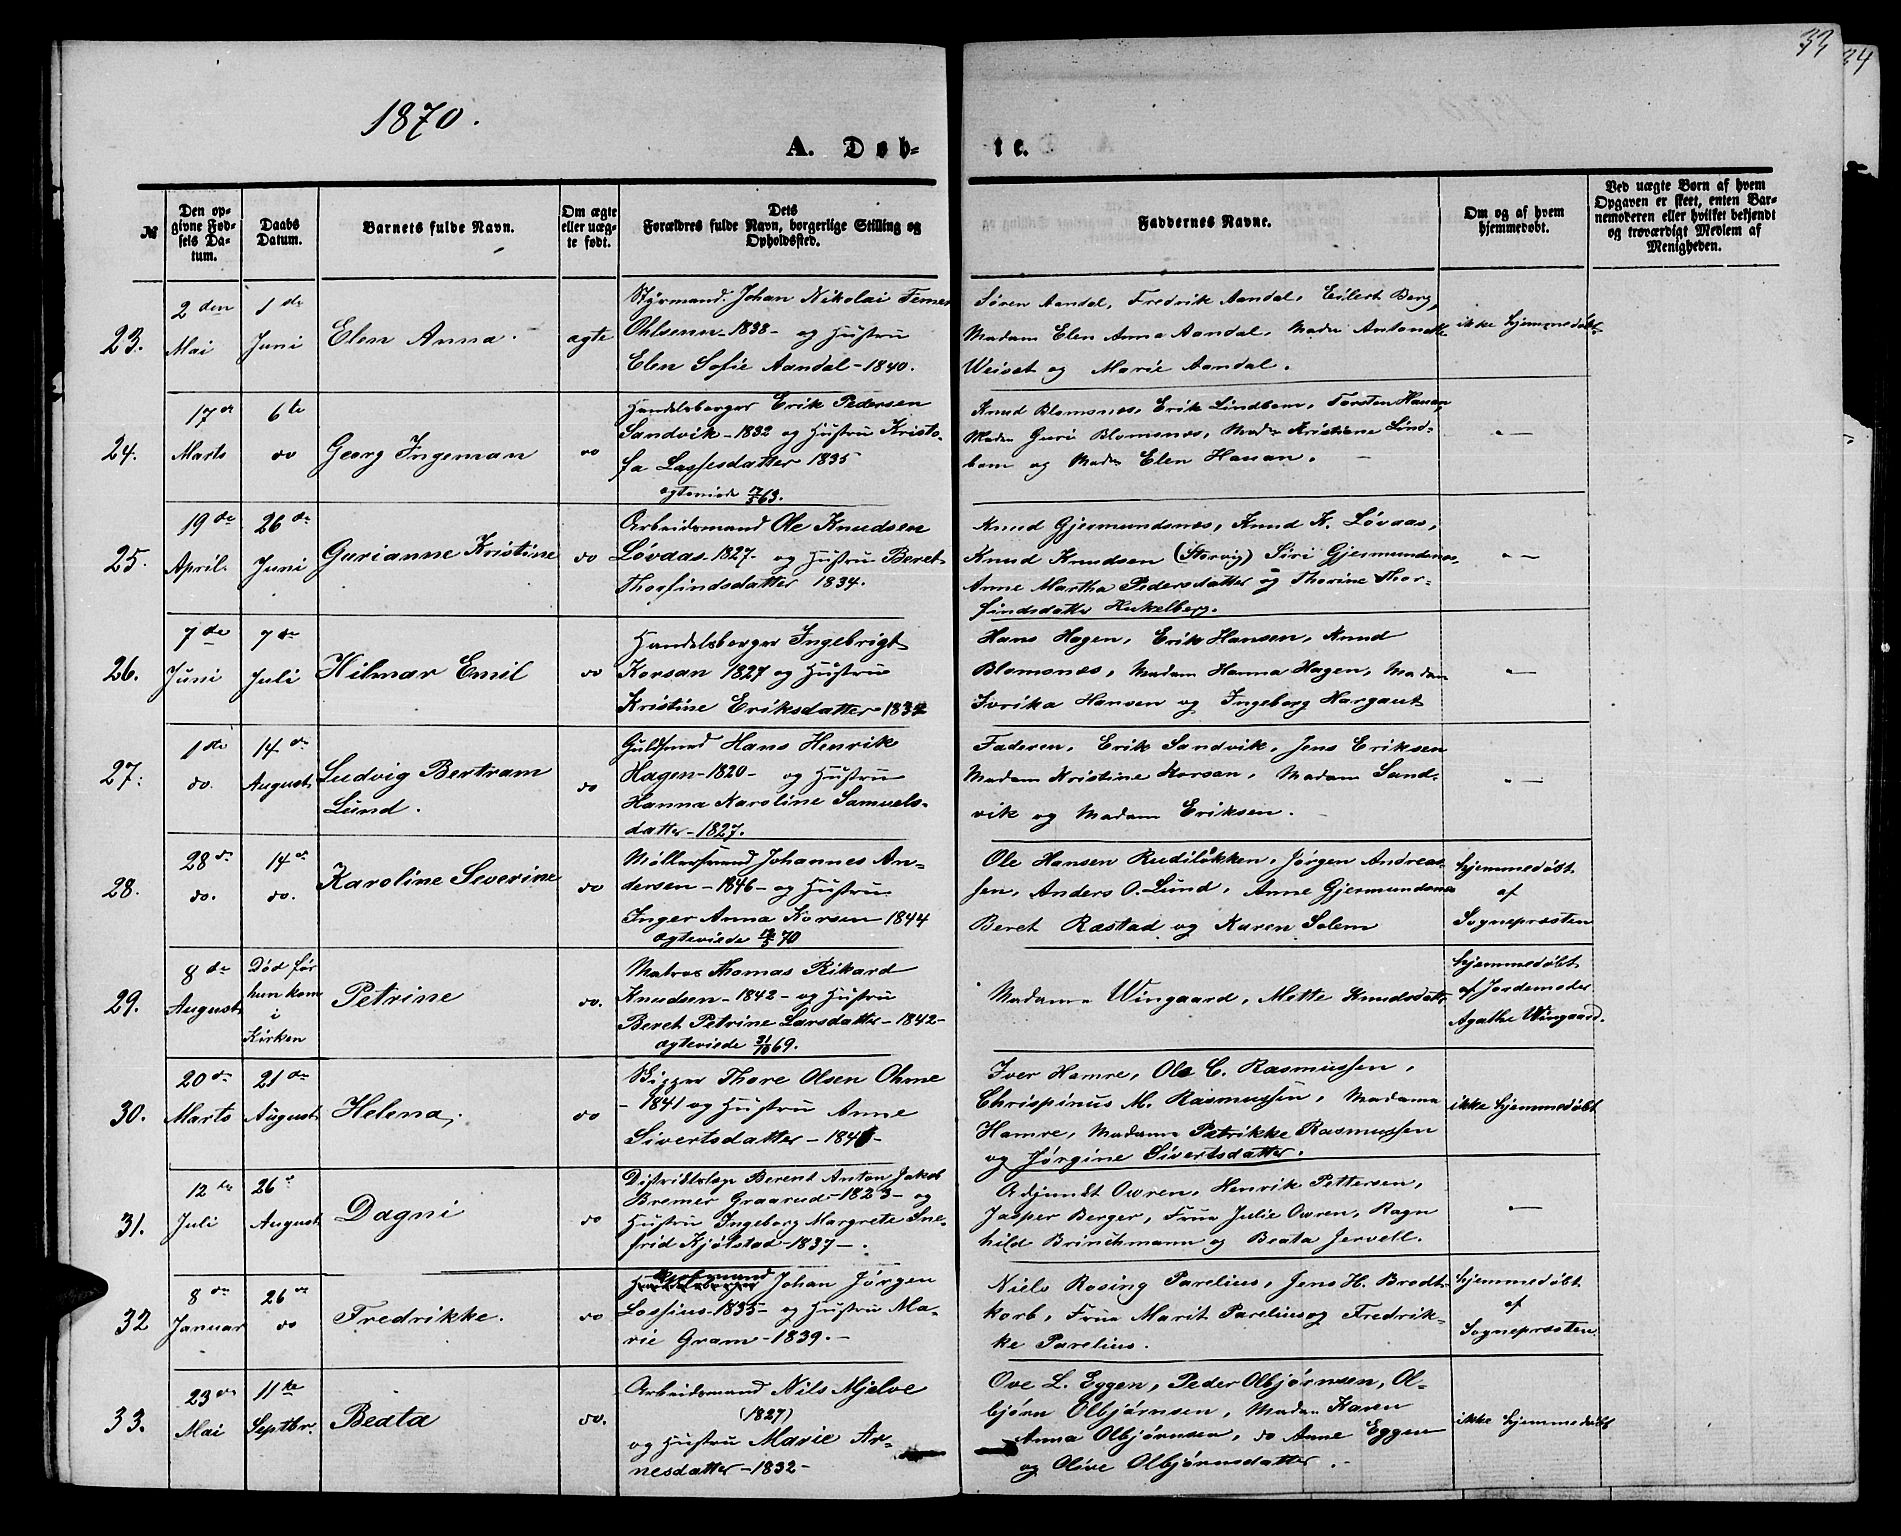 33
34
1870.
A. Døb-
te.
№
Den op-
givne Fød-
sels Da-
tum.
Daabs
Datum.
Barnets fulde Navn.
Om ægte
eller uæg-
te født.
Dets
Forældres fulde Navn, borgerlige Stilling og
Opholdssted.
Faddernes Navne.
Om og af hvem
hjemmedøbt.
Ved uægte Børn af hvem
Opgaven er skeet, enten Bar-
nemoderen eller hvilket bekjendt
og troværdigt Medlem af
Menigheden.
23.
2den
Mai
1ste
Juni
Elen Anna.
ægte
Styrmand Johan Nikolai
Ohlsenn - 1838 - og Hustru
Elen Sofie Aandal - 1840.
Søren Aandal, Fredrik Aandal, Eilert Berg,
Madam Elen Anna Aandal, Madm Antonette
Weiset og Marie Aandal.
ikke hjemmedøbt
24.
17de
Marts
6te
do
Georg Ingeman
do
Handelsborger Erik Pedersen
Sandvik - 1832 og Hustru Kristo-
fa Lassesdatter 1835
ægteviede 17/5 63.
Knud Blomsnes, Erik Lindbom, Torsten Hauan,
Madm Guri Blomsnes, Madm Kristiane Lind-
bom og Madm Elen Hauan.
"—
25.
19de
April.
26de
Juni
Gurianne Kristine
do
Arbeidsmand Ole Knudsen
Løvaas. 1827 - og Hustru Beret
Thorfindsdatter 1834.
Knud Gjesmundsnes, Knud K. Løvaas,
Knud Knudsen (Storvig) Siri Gjermundsnes,
Anne Martha Pedersdatter og Thorine Thor-
findsdatter Hukelberg.
"—
26.
7de
Juni
7de
Juli
Hilmar Emil
do
Handelsborger Ingebrigt
Korsan 1827 og Hustru
Kristine Eriksdatter - 1834
Hans Hagen, Erik Hansen, Knud
Blomsnes, Madam Hanna Hagen, Madam
Ivrika Hansen og Ingeborg Hargaut
"—
27.
1ste
do.
14de
August
Ludvig Bertram
Lund.
do
Guldsmed Hans Henrik
Hagen - 1820 - og Hustru
Hanna Karoline Samuels-
datter - 1827.
Faderen, Erik Sandvik, Jens Eriksen
Madam Kristine Korsan, Madam Sand-
vik og Madam Eriksen.
"—
28.
28de
do.
14de
do.
Karoline Severine
do
Møllersvend Johannes An-
dersen - 1846 - og Hustru
Inger Anna Korsen 1844
ægteviede 70
Ole Hansen Rudiløkken, Jørgen Andreas-
sen, Anders O. Lund, Anne Gjesmundsnes
Beret Rastad og Karen Solem
hjemmedøbt
af
Sognepræsten
29.
8de
August
Død før
hun kom
i
Kirken
Petrine
do.
Matros Thomas Rikard
Knudsen - 1842 - og Hustru
Beret Petrine Larsdatter - 1842 -
ægteviede 31/10 69.
Madame Wingaard, Mette Knudsdatter
hjemmedøbt
af Jordemoder
Agathe Wingaard.
30.
20de
Marts
21de
August
Helena.
do
Bygger Thore Olsen Ohme
- 1841 og Hustru Anne
Sivertsdatter - 1841 -
Iver Hamre, Ole C. Rasmussen,
Chrispinus M. Rasmussen, Madame
Hamre, Madame Patrikke Rasmussen
og Jørgine Sivertsdatter.
ikke hjemmedøbt
31.
12te
Juli
26de
August
Dagni
do
Distriktslæge Berent Anton Jakob
Bremer Graarud - 1823 - og
Hustru Ingeborg Margrete Sne-
frid Kjølstad - 1837 - .
Adjunkt Owren, Henrik Pettersen,
Jasper Berger, Frue Julie Owren, Ragn
hild Brinchmann og Beata Jervell.
"—
32
8de
Januar
26de
do
Fredrikke.
do
Handelsborger Johan Jørgen
Lossius. 1835 - og Hustru Ma-
rie Gram - 1839. -
Niels Rosing Parelius, Jens H. Brodt-
korb, Frue Marit Parelius og Fredrik-
ke Parelius.
hjemmedøbt
af
Sognepræsten
33.
23de
Mai
11te
Septbr.
Beata
do.
Arbeidsmand Nils Mjelve
(1827)
og Hustru Marie Ar-
nesdatter - 1832 -
Ove L. Eggen, Peder Olbjørnsen, Ol-
bjørn Olbjørnsen, Madm Karen
Anna Olbjørnsen, do Anne Eggen
og Olive Olbjørnsdatter. -
ikke hjemmedøbt